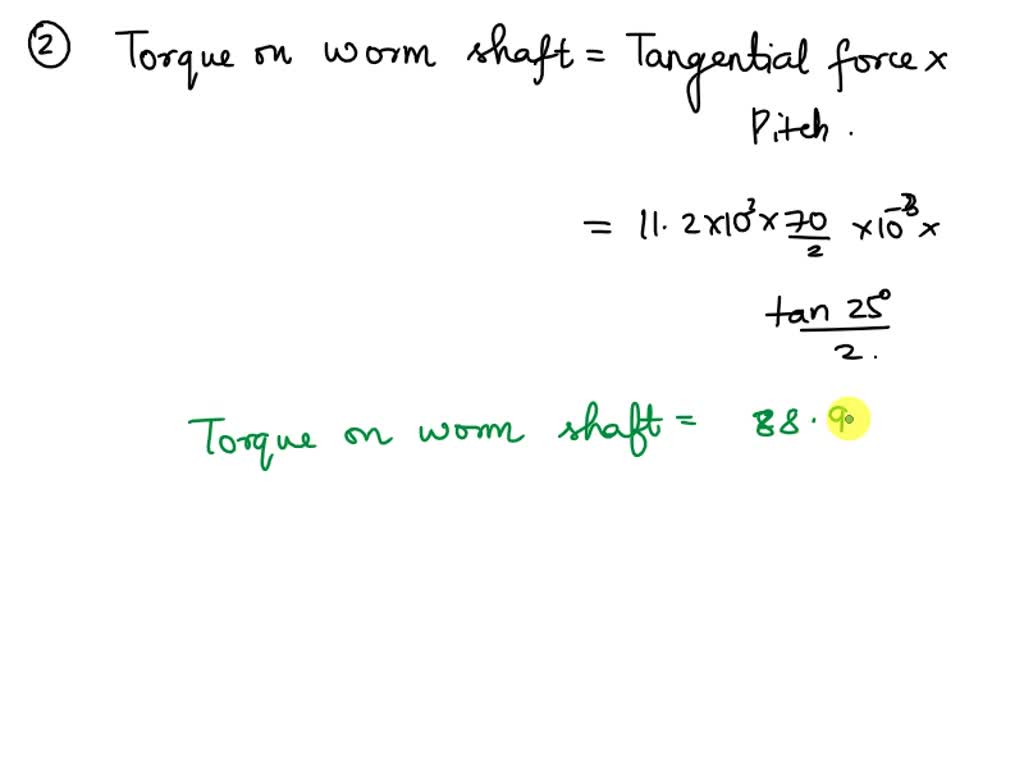 ② Torque on worm shaft = Tangential force x
Pitch.
= 11.2 x 10³ x 70/2 x 10⁻³ x
tan 25°/2.
Torque on worm shaft = 88.9